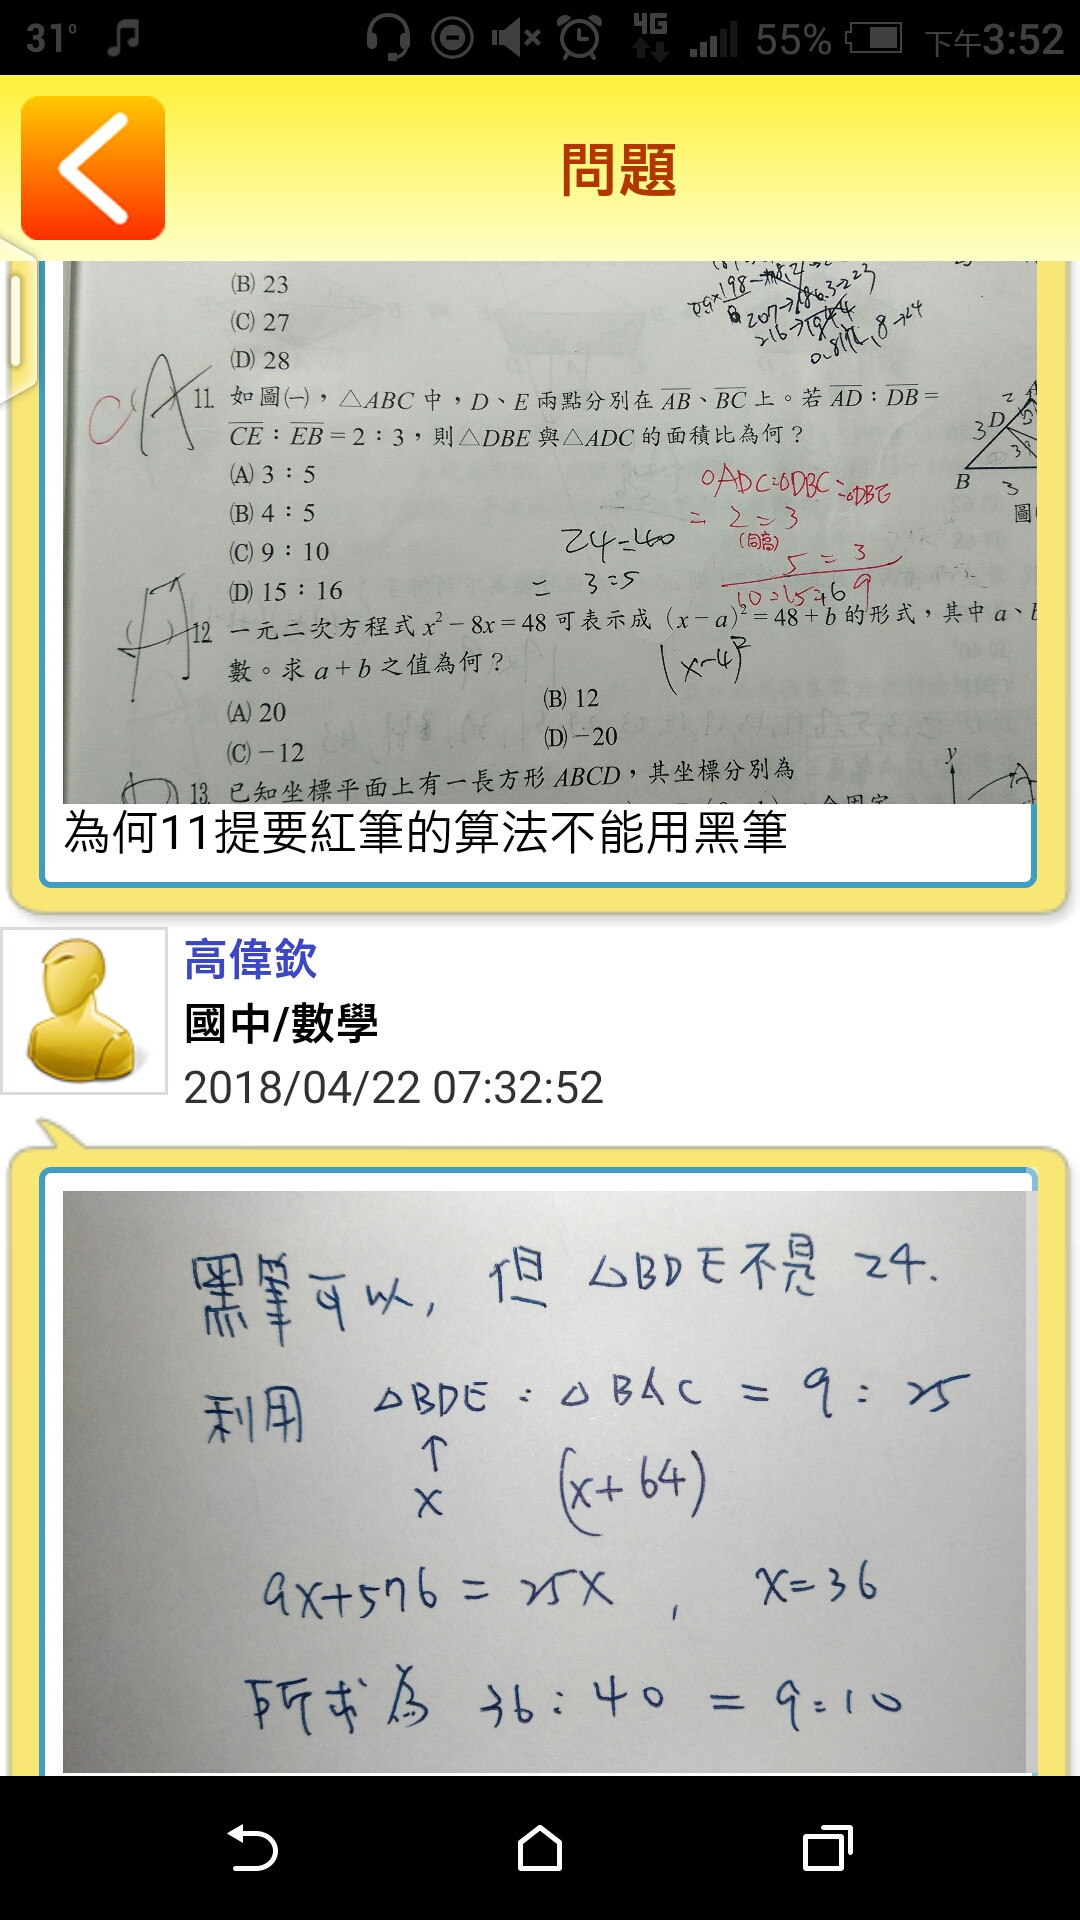 31°
4G
55%
下午3:52
問題
(B) 23
(C) 27
(D) 28
11. 如圖(一),△ABC 中,D、E 兩點分別在 AB、BC 上。若 AD:DB=
CE:EB=2:3,則△DBE 與△ADC 的面積比為何?
(A) 3:5
(B) 4:5
(C) 9:10
(D) 15:16
△ADC:△DBC:△DBE
= 2 = 3
(同高)
5 = 3
24=40
= 3=5
A
2
D
3
B
3
圖
12 一元二次方程式 x²-8x=48 可表示成 (x-a)²=48+b 的形式,其中 a、b
數。求 a+b 之值為何?
(x-4)²
(A) 20
(B) 12
(C) -12
(D) -20
13. 已知坐標平面上有一長方形 ABCD,其坐標分別為
y
為何11提要紅筆的算法不能用黑筆
高偉欽
國中/數學
2018/04/22 07:32:52
黑筆可以, 但 △BDE不是 24.
利用 △BDE : △BAC = 9 : 25
↑
x (x+64)
9x+576 = 25x , x=36
所求為 36:40 = 9:10